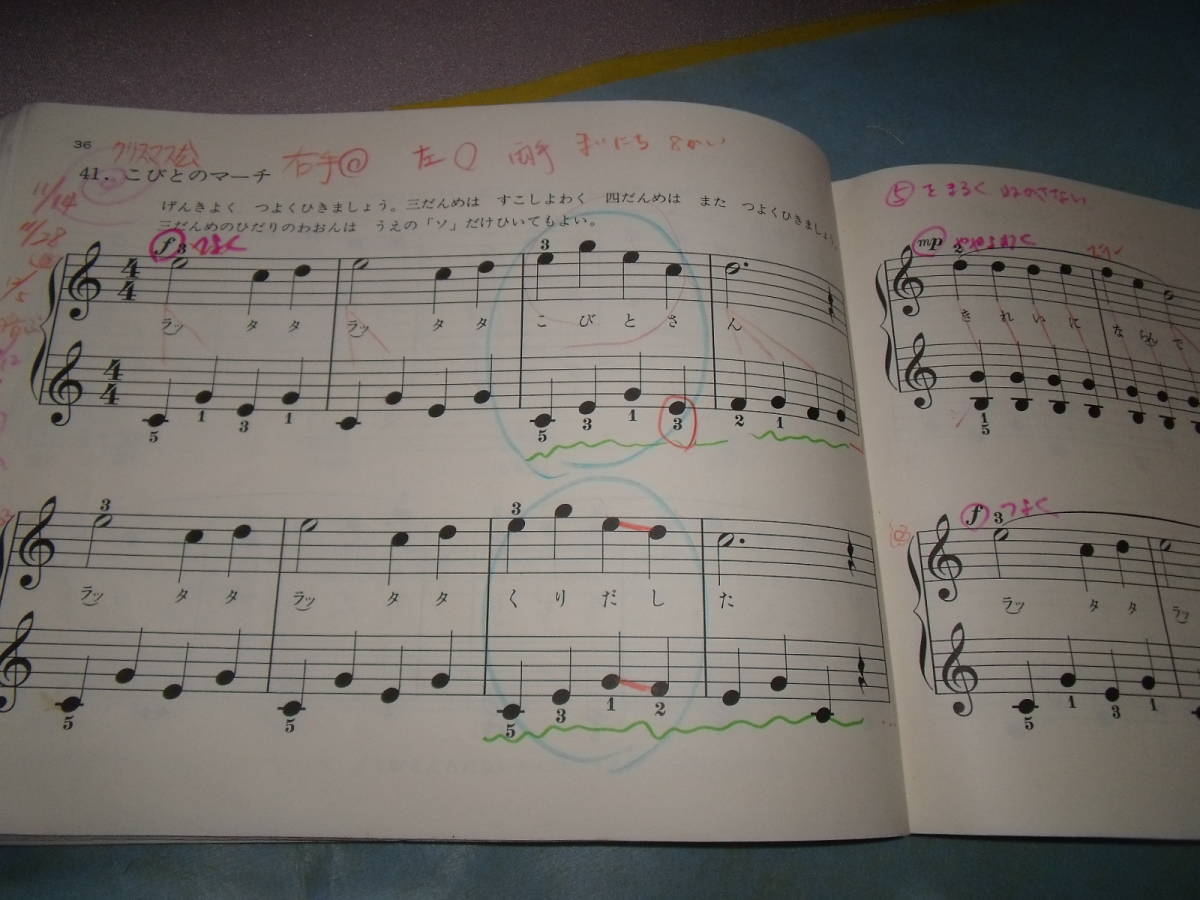 36
クリスマス会
右手 左 両手 まいにち 8かい
41. こびとのマーチ
11/14
11/28
12/5
げんきよく つよくひきましょう。三だんめは すこしよわく 四だんめは また つよくひきましょう。
三だんめのひだりのわおんは うえの「ソ」だけひいてもよい。
f 3 つよく 3
4 4
ラッ タ タ ラッ タ タ こ び と さ ん
4 4
5 1 3 1 5 3 1 3 2 1
3 3
ラッ タ タ ラッ タ タ く り だ し た
5 5 5 3 1 2
⑤をまるく ゆびのさない
mp ややよわく
2
き れ い に な らん で
1 5
f つよく
3
ラッ タ タ ラッ
5 1 3 1